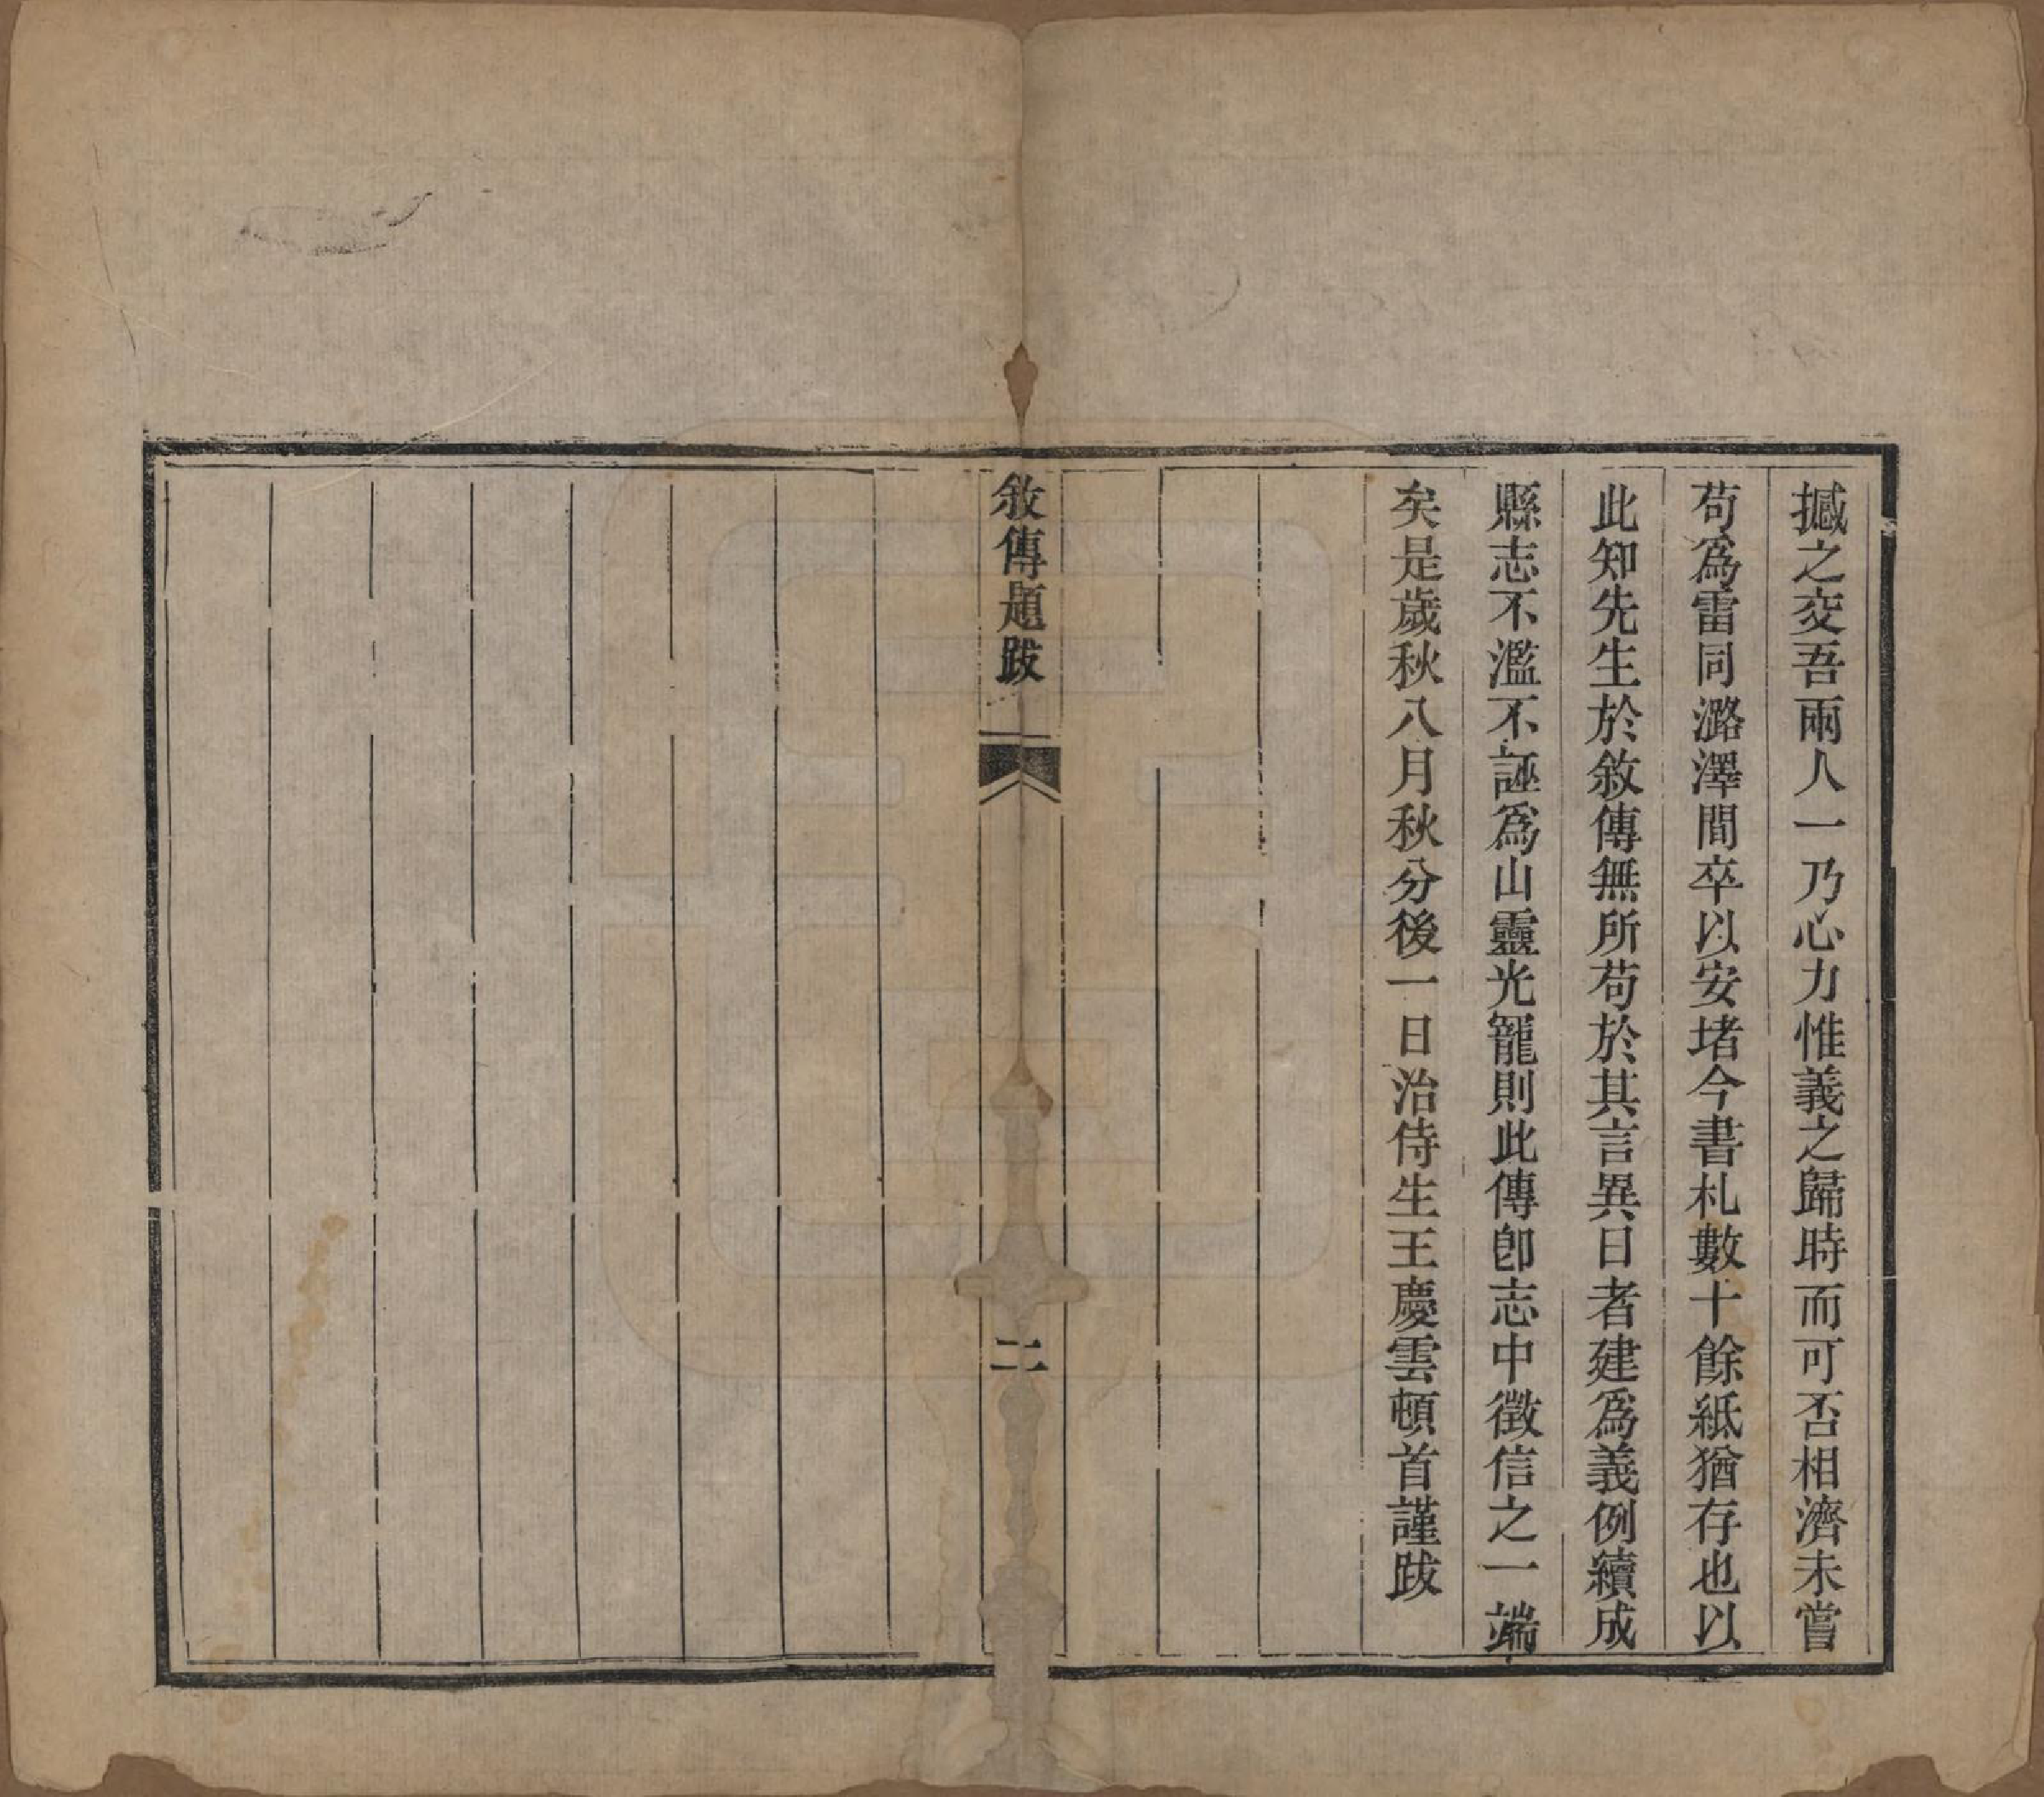 撼之交吾兩人一乃心力惟義之歸時而可否相濟未嘗
苟爲雷同潞澤間卒以安堵今書札數十餘紙猶存也以
此知先生於敘傳無所苟於其言異日者建爲義例續成
縣志不濫不誣爲山靈光寵則此傳卽志中徵信之一端
矣是歲秋八月秋分後一日治侍生王慶雲頓首謹跋
敘傳題跋
二